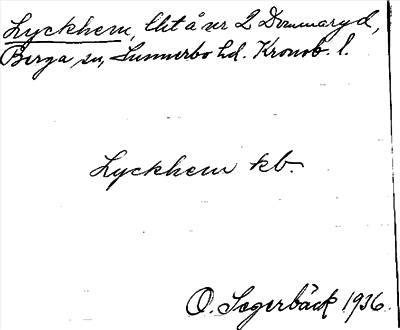 Lyckhem, lht å nr 2 Dommaryd,
Berga sn, Sunnerbo hd. Kronob. l.
Lyckhem kb.
O. Segerbäck 1936.